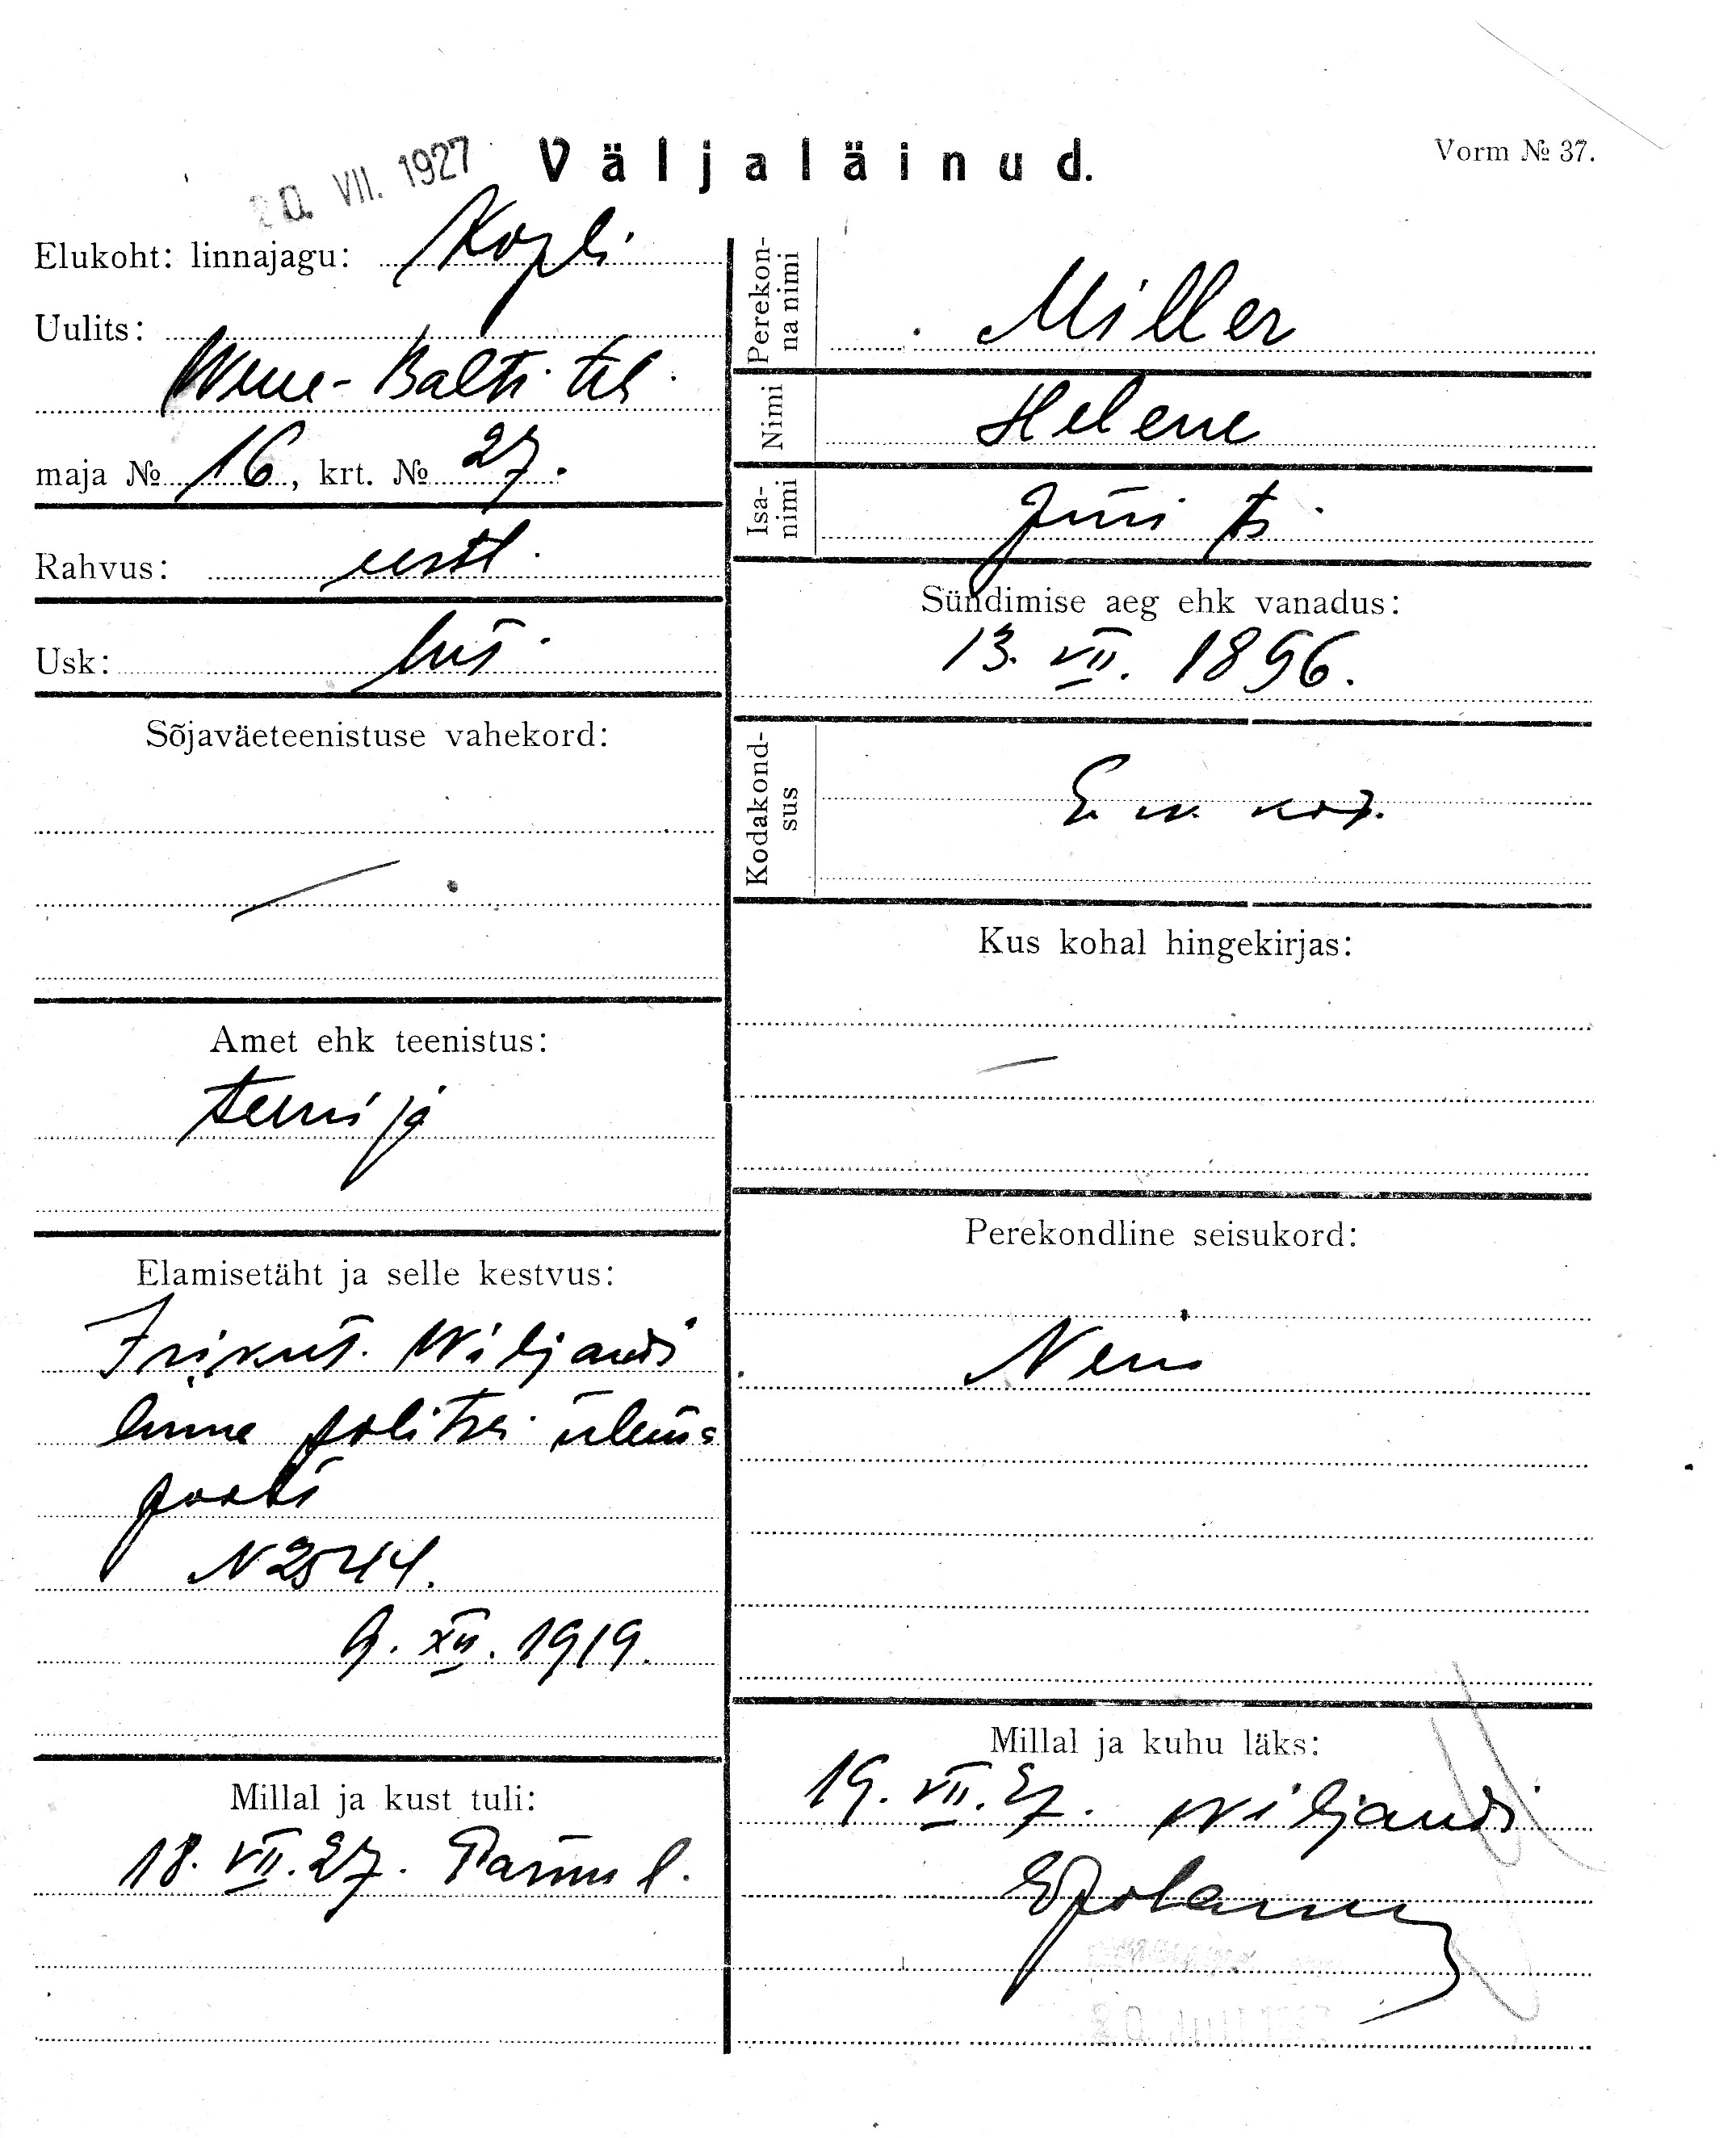 20. VII. 1927
Väljaläinud.
Vorm № 37.
Elukoht: linnajagu: Kopli
Uulits:
Wene-Balti teh.
maja № 16, krt. № 27.
Rahvus: eestl.
Usk: lut.
Sõjaväeteenistuse vahekord:
—
Amet ehk teenistus:
teenija
Elamisetäht ja selle kestvus:
Isikut. Wiljandi
linna politsei ülema
poolt
N 2544.
9. XII. 1919.
Millal ja kust tuli:
18. VII. 27. Pärnu l.
Perekonna nimi
Miller
Nimi
Helene
Isanimi
Jüri t.
Sündimise aeg ehk vanadus:
13. VII. 1896.
Kodakondsus
E. w. kod.
Kus kohal hingekirjas:
—
Perekondline seisukord:
Neiu
Millal ja kuhu läks:
19. VII. 27. Wiljandi